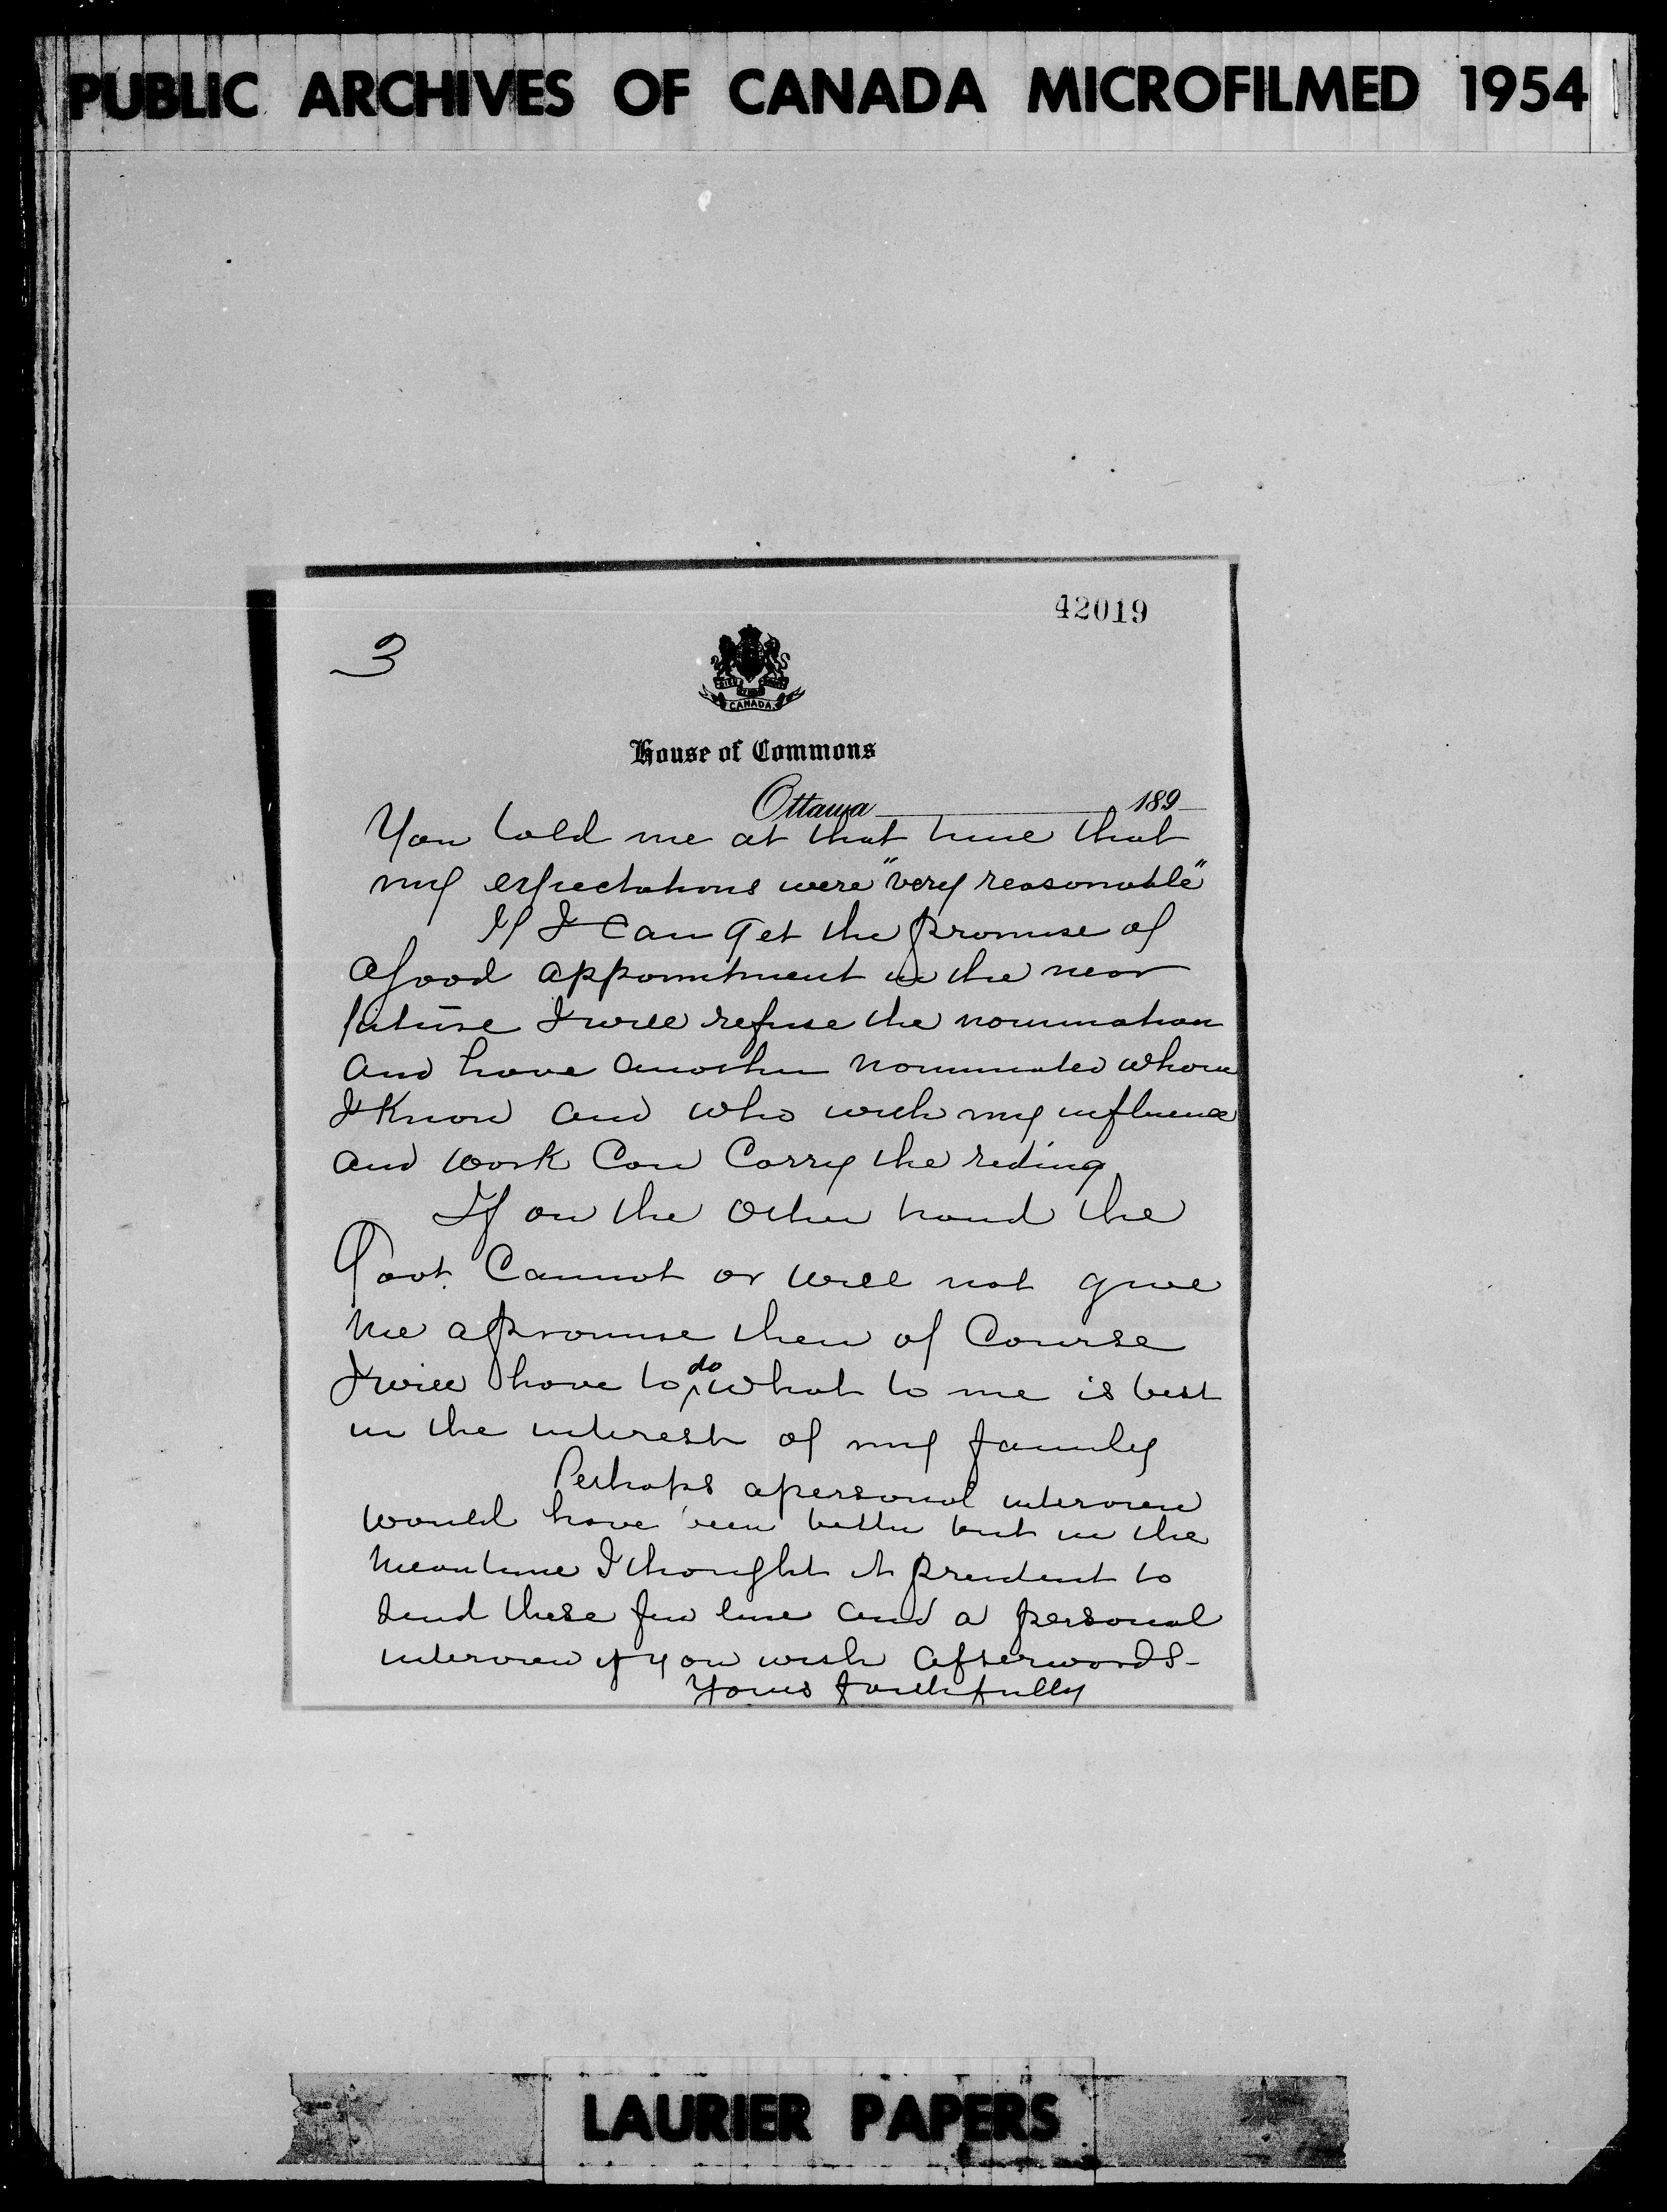 PUBLIC ARCHIVES OF CANADA MICROFILMED 1954
42019
3
CANADA
House of Commons
Ottawa 189
You told me at that time that
my expectations were "very reasonable"
If I can get the promise of
a good appointment in the near
future I will refuse the nomination
and have another nominated whom
I know and who with my influence
and work can carry the riding
If on the other hand the
Govt. Cannot or will not give
me a promise then of Course
I will have to do what to me is best
in the interest of my family
Perhaps a personal interview
would have been better but in the
meantime I thought it prudent to
send these few line and a personal
interview if you wish afterwards-
Yours faithfully
LAURIER PAPERS